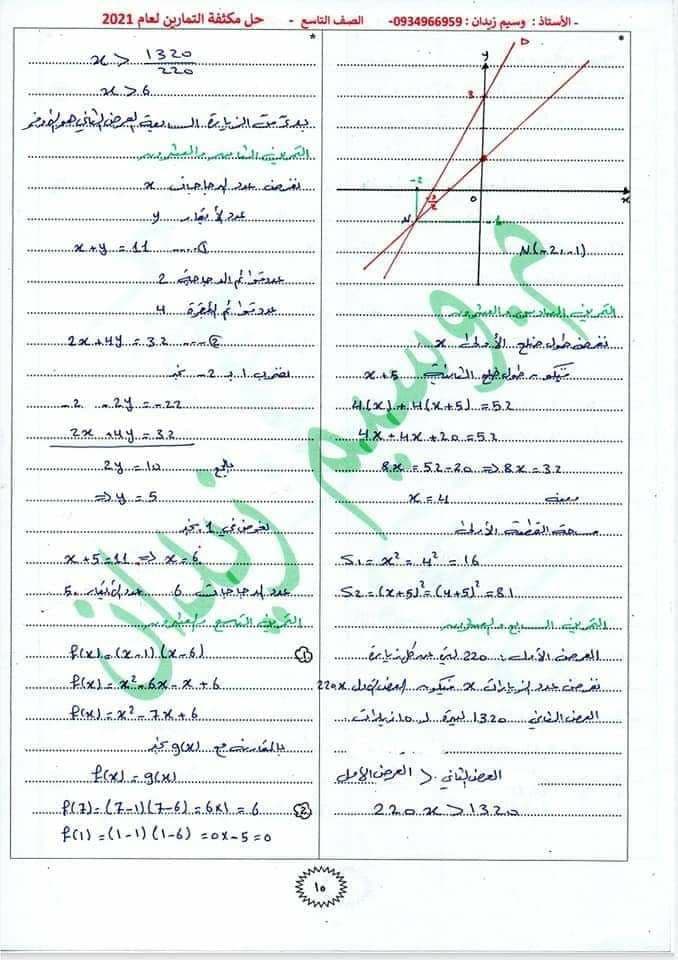 - الأستاذ : وسيم زيدان : 0934966959- الصف التاسع - حل مكثفة التمارين لعام 2021
*
D
y
3
-2
-3/2
0
x
N
-1
N(-2,-1)
التمرين السادس والعشرون
نفرض طول ضلع الأولى x
فيكون طول ضلع الثانية x+5
4(x)+4(x+5)=52
4x+4x+20=52
8x=52-20 => 8x=32
ومنه x=4
مساحة القطعة الأولى
S1=x²=4²=16
S2=(x+5)²=(4+5)²=81
التمرين السابع والعشرون
العرض الأول: 220 ليرة عن كل زيارة
نفرض عدد الزيارات x فيكون العرض الأول 220x
العرض الثاني 1320 ليرة لـ 10 زيارات
العرض الثاني < العرض الأول
220x>1320
*
x > 1320/220
x>6
بدءً من الزيارة السابعة العرض الثاني هو الأوفر
التمرين الثامن والعشرون
نفرض عدد الدجاجات x
عدد الأبقار y
x+y=11 .... ①
عدد قوائم الدجاجة 2
عدد قوائم البقرة 4
2x+4y=32 ... ②
نضرب 1 بـ -2 نجد
-2 -2y=-22
2x+4y=32
بالجمع 2y=10
=> y=5
نعوض في 1 نجد
x+5=11 => x=6
عدد الدجاجات 6 عدد الأبقار 5
التمرين التاسع والعشرون
① f(x)=(x-1)(x-6)
f(x)=x²-6x-x+6
f(x)=x²-7x+6
بالمقارنة مع g(x) نجد
f(x)=g(x)
② f(7)=(7-1)(7-6)=6x1=6
f(1)=(1-1)(1-6)=0x-5=0
م. وسيم زيدان
١٥